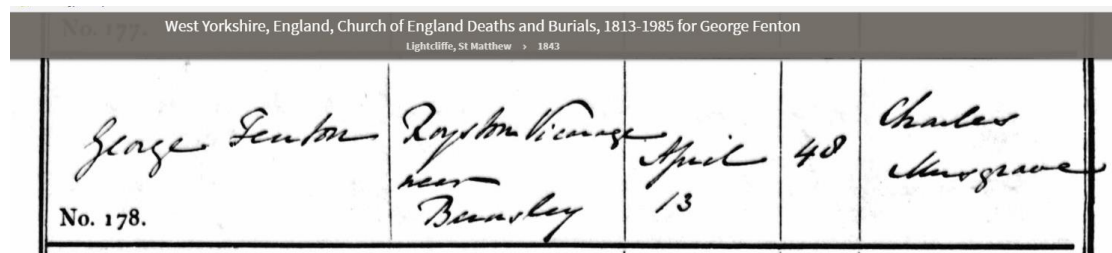 No. 177.
West Yorkshire, England, Church of England Deaths and Burials, 1813-1985 for George Fenton
Lightcliffe, St Matthew › 1843
George Fenton
No. 178.
Royston Vicarage
near
Barnsley
April
13
48
Charles
Musgrave